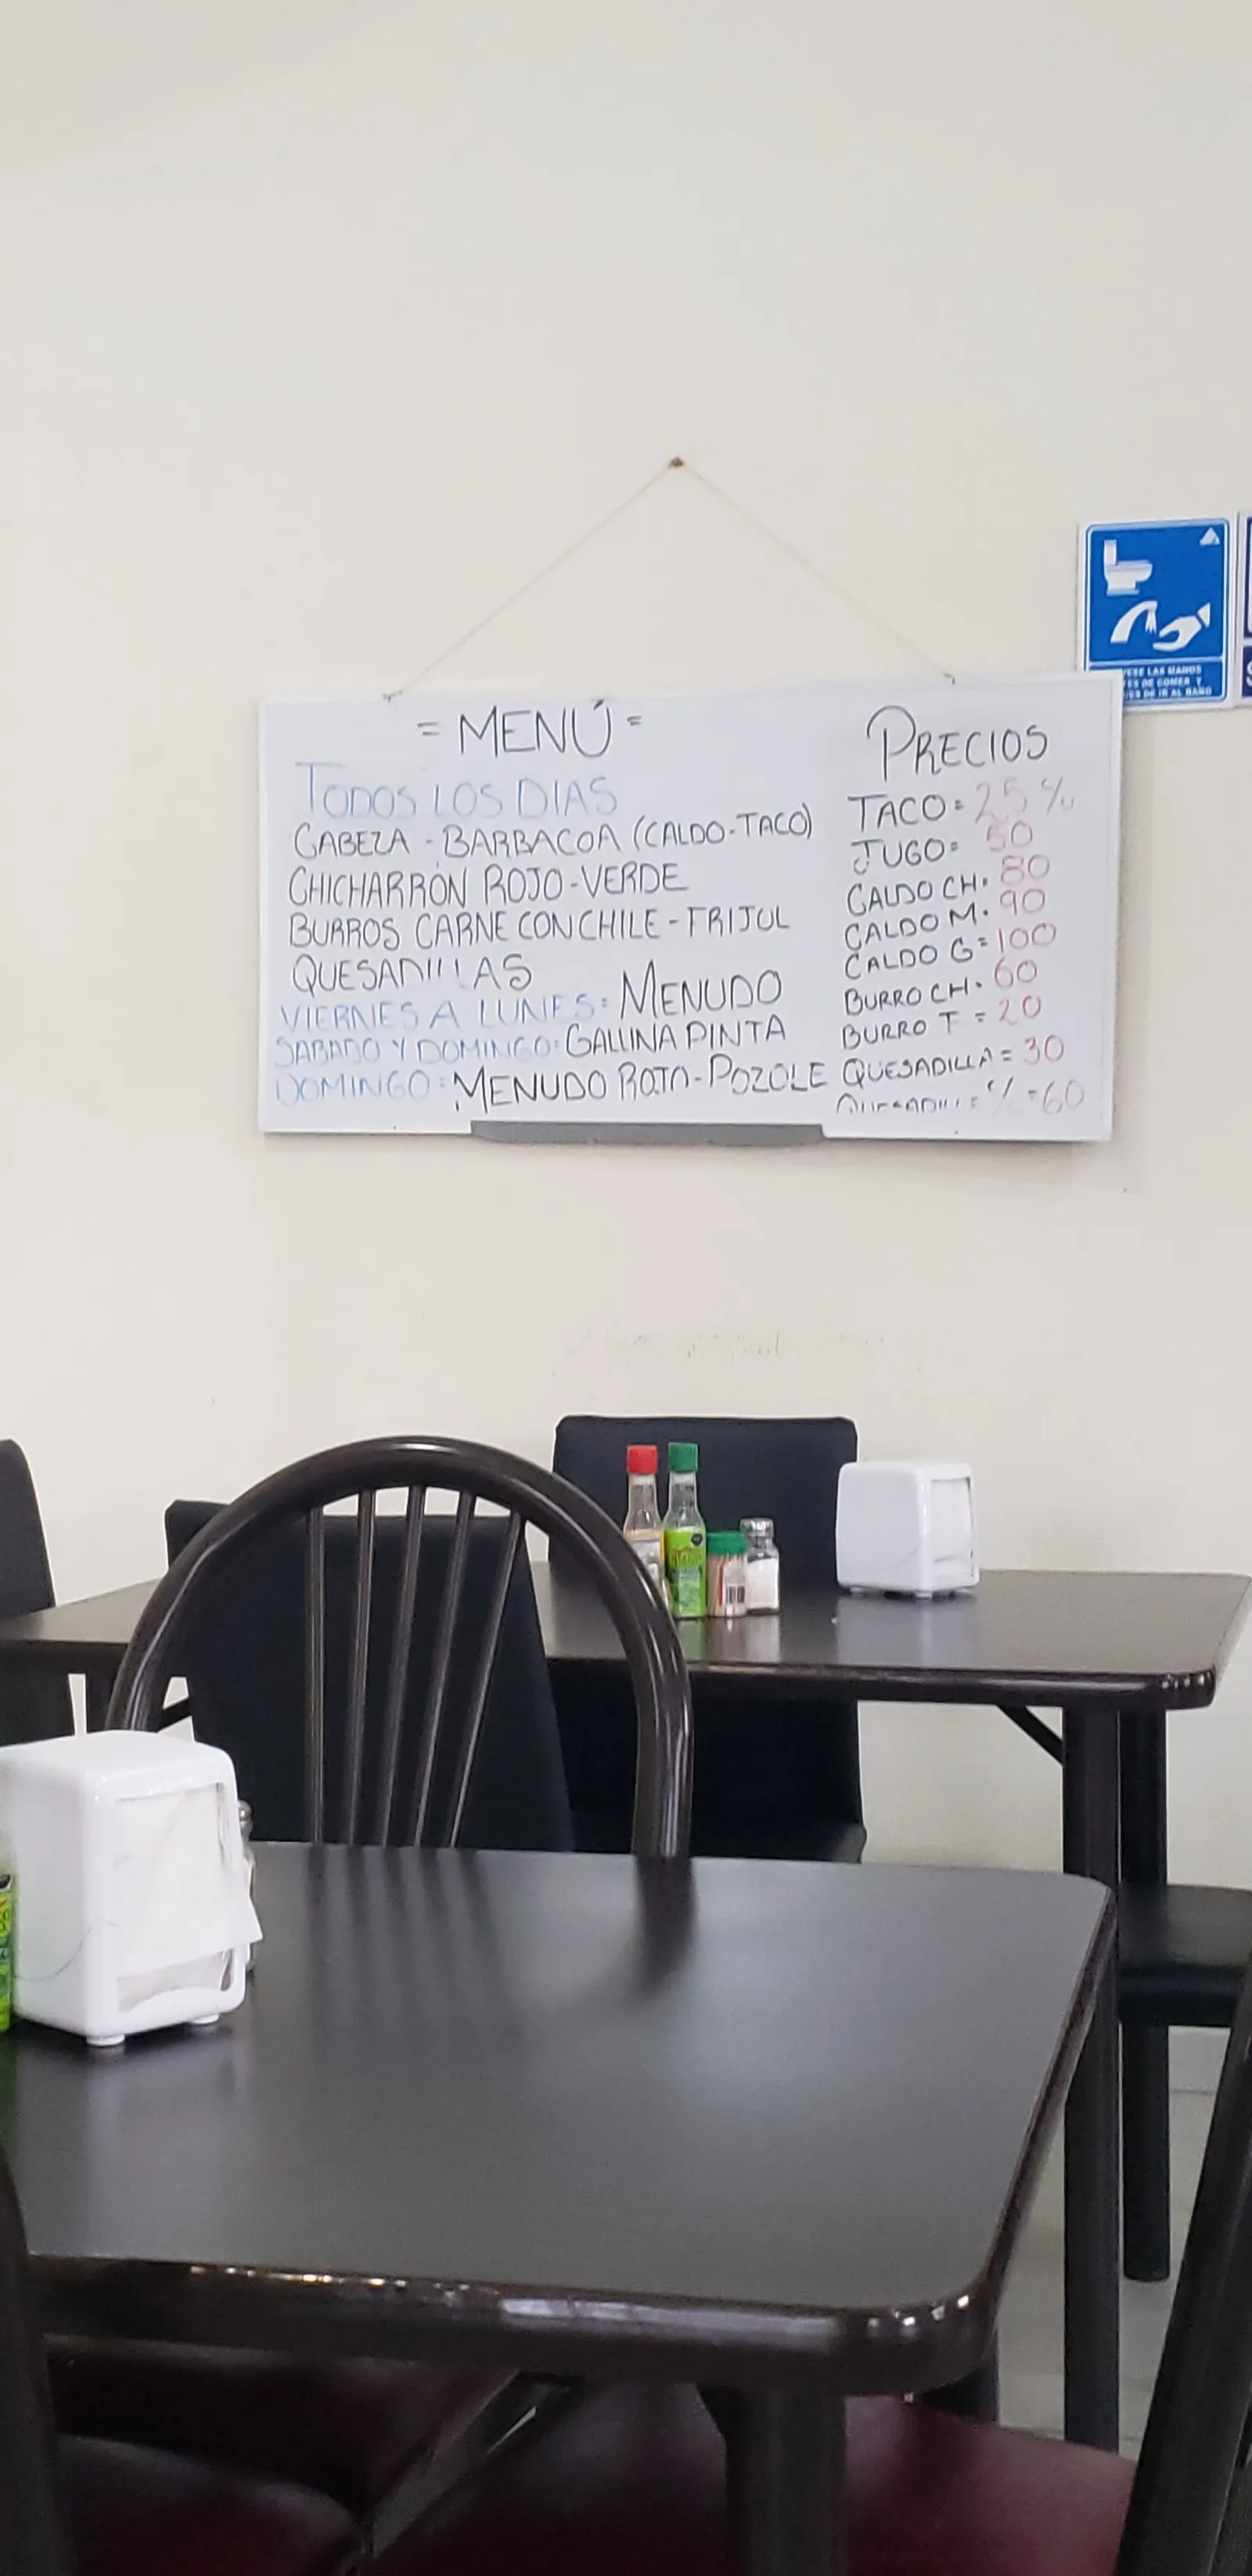 = MENÚ =
TODOS LOS DIAS
CABEZA - BARBACOA (CALDO-TACO)
CHICHARRÓN ROJO-VERDE
BURROS CARNE CON CHILE - FRIJOL
QUESADILLAS
VIERNES A LUNES: MENUDO
SABADO Y DOMINGO: GALLINA PINTA
DOMINGO: MENUDO ROJO-POZOLE
PRECIOS
TACO = 25
JUGO = 50
CALDO CH. 80
CALDO M. 90
CALDO G = 100
BURRO CH. 60
BURRO T = 20
QUESADILLA = 30
= C/C = 60
LAS MANOS
DE COMER Y
DE IR AL BAÑO